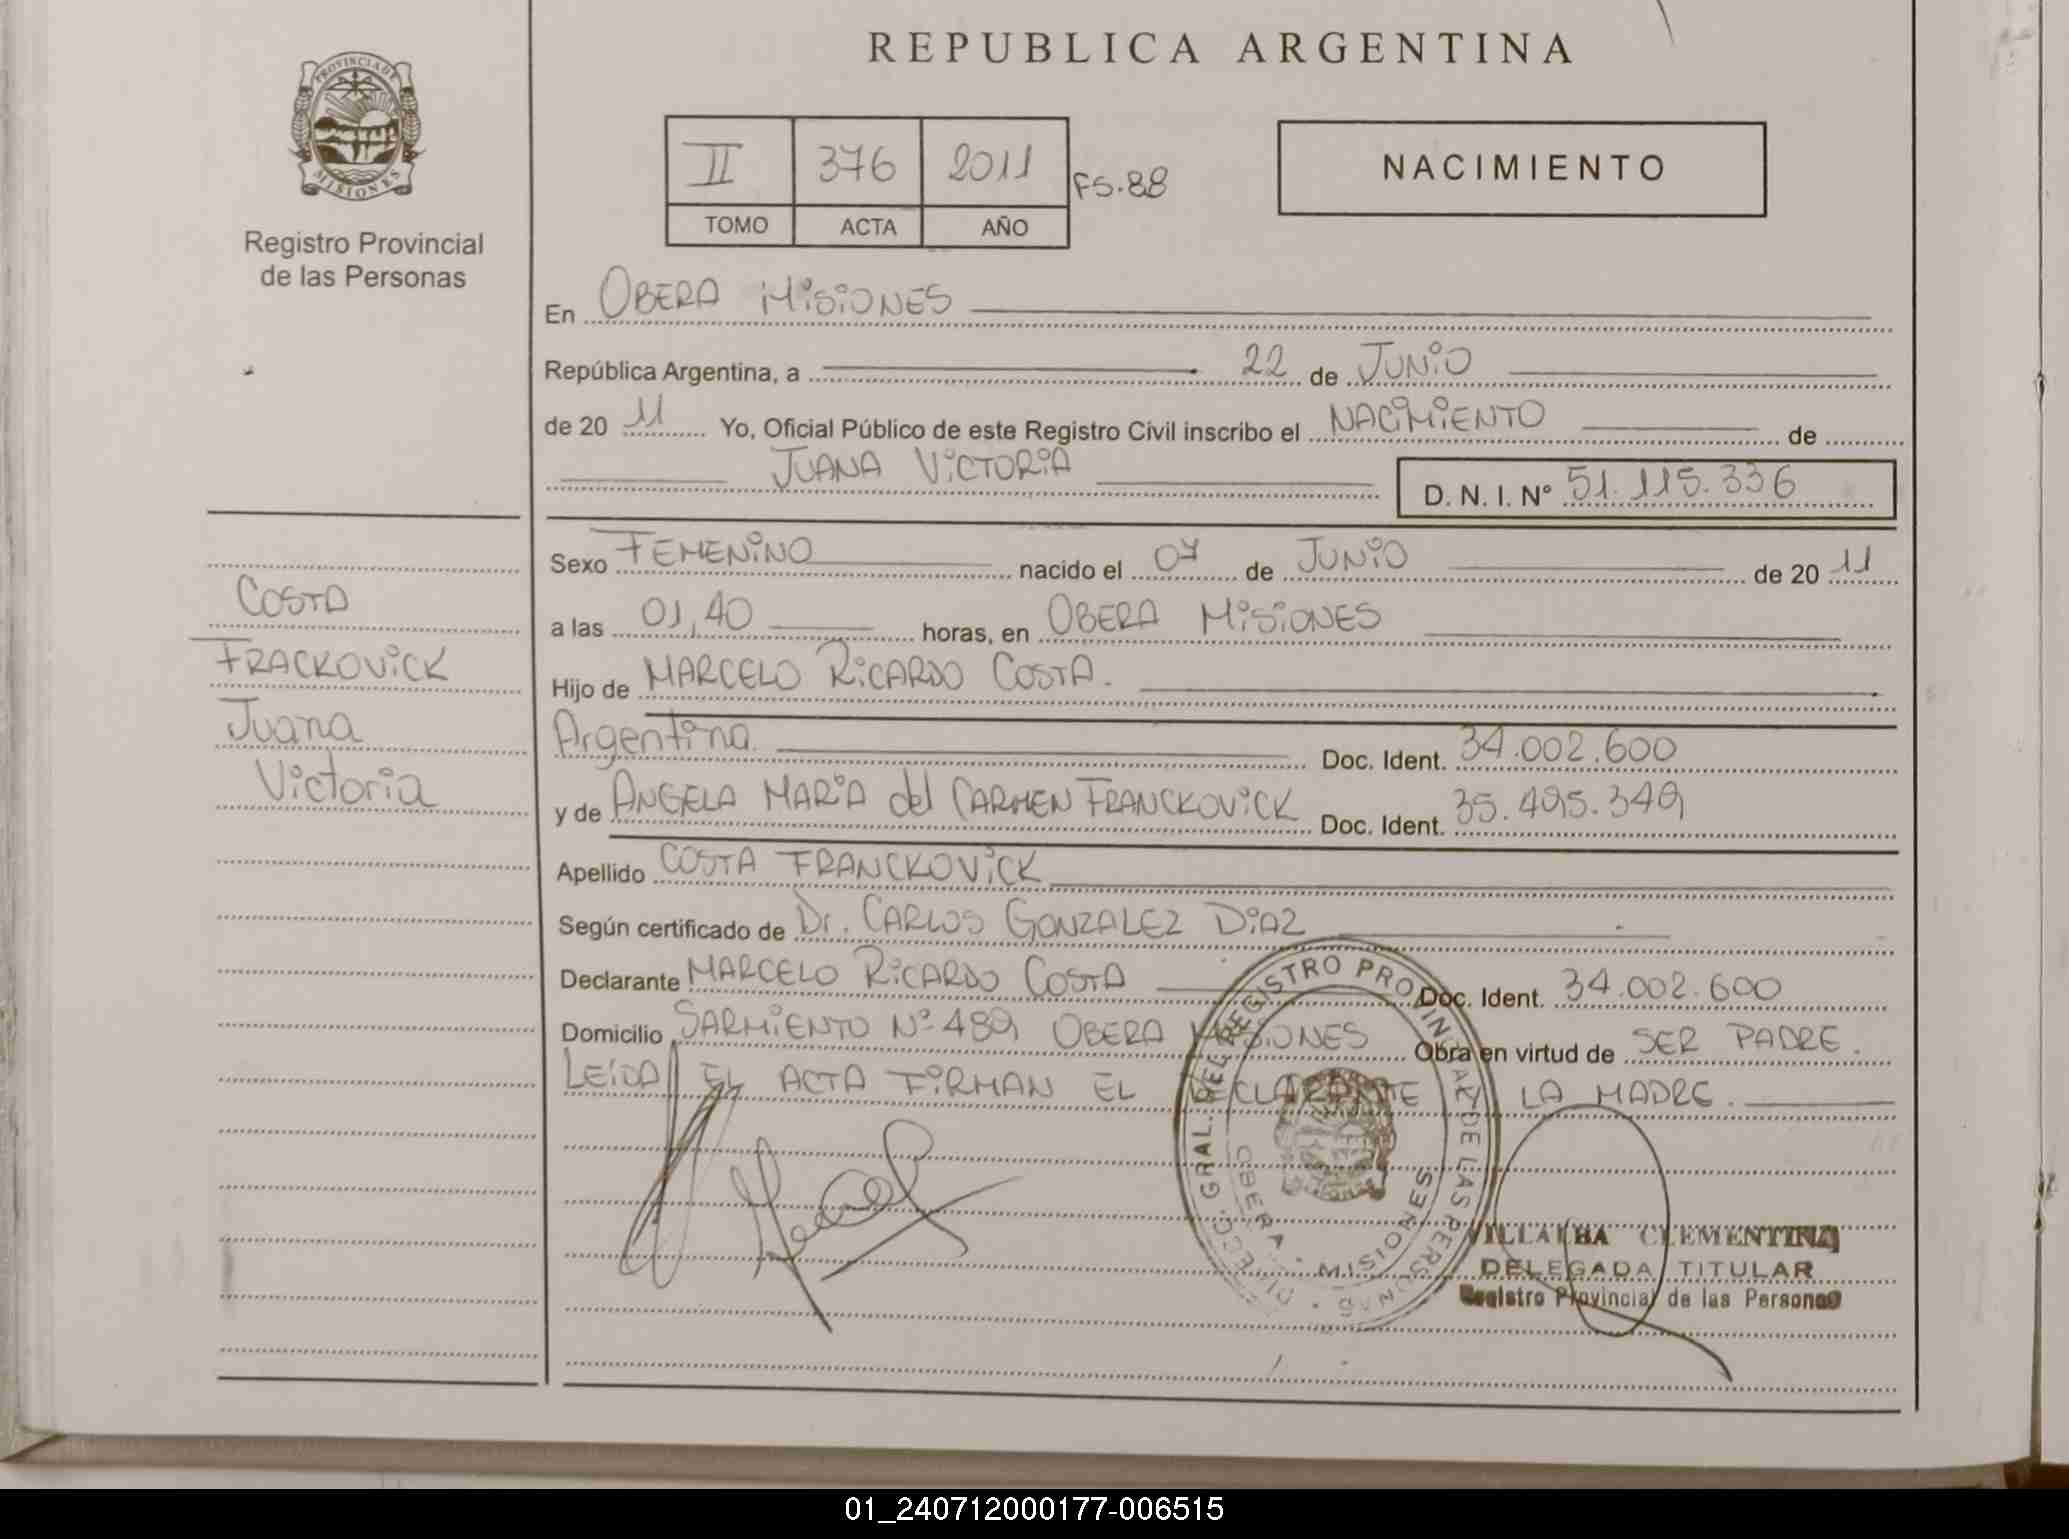 REPUBLICA ARGENTINA
PROVINCIA DE
MISIONES
Registro Provincial
de las Personas
II 376 2011 FS.88
TOMO ACTA AÑO
NACIMIENTO
En OBERA MISIONES
República Argentina, a 22 de JUNIO
de 2011 Yo, Oficial Público de este Registro Civil inscribo el NACIMIENTO de
JUANA VICTORIA D. N. I. Nº 51.115.336
Sexo FEMENINO nacido el 07 de JUNIO de 2011
a las 01,40 horas, en OBERA MISIONES
Hijo de MARCELO RICARDO COSTA.
Argentina. Doc. Ident. 34.002.600
y de ANGELA MARIA del CARMEN FRANCKOVICK Doc. Ident. 35.495.349
Apellido COSTA FRANCKOVICK
Según certificado de Dr. CARLOS GONZALEZ DIAZ
Declarante MARCELO RICARDO COSTA Doc. Ident. 34.002.600
Domicilio SARMIENTO Nº 489 OBERA MISIONES Obra en virtud de SER PADRE.
LEIDA EL ACTA FIRMAN EL DECLARANTE Y LA MADRE.
COSTA
FRACKOVICK
Juana
Victoria
DIRECC. GRAL. DEL REGISTRO PROVINCIAL DE LAS PERSONAS
OBERA - MISIONES
VILLALBA CLEMENTINA
DELEGADA TITULAR
Registro Provincial de las Personas
01_240712000177-006515